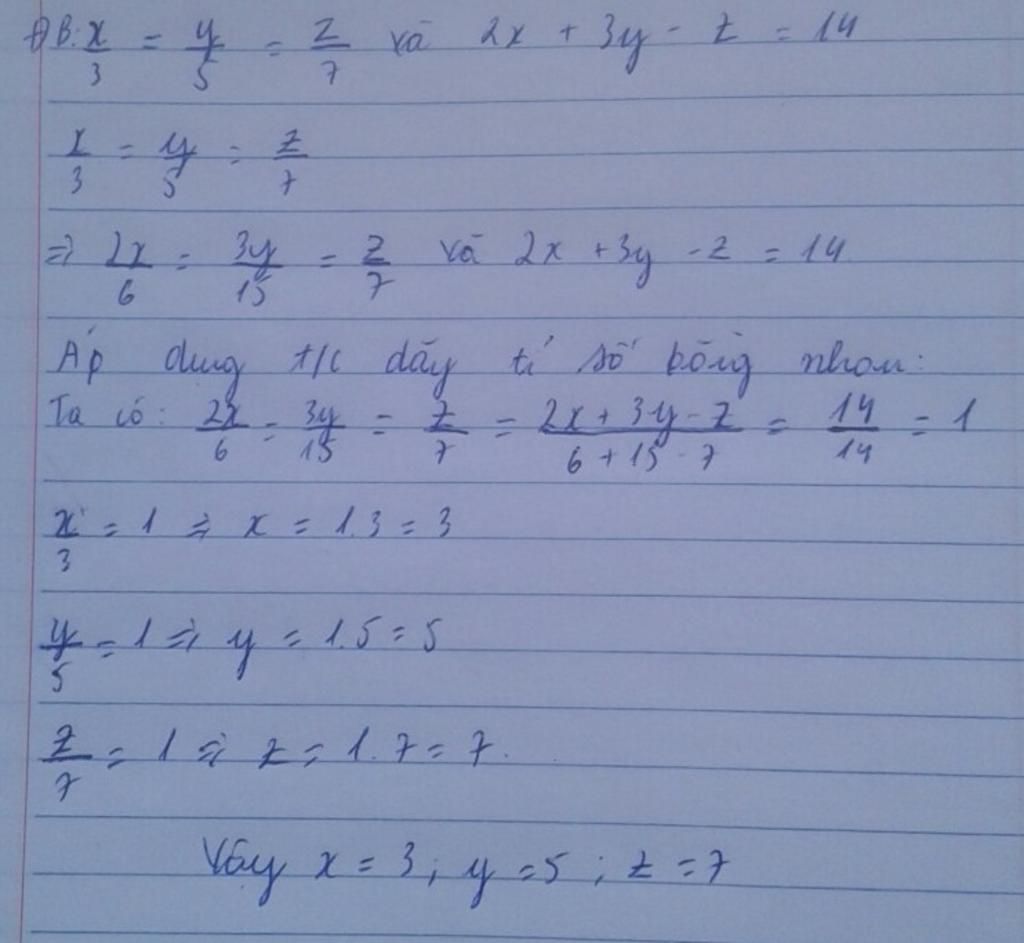 ĐB: x/3 = y/5 = z/7 và 2x + 3y - z = 14
x/3 = y/5 = z/7
=> 2x/6 = 3y/15 = z/7 và 2x + 3y - z = 14
Áp dung t/c dãy tỉ số bằng nhau:
Ta có: 2x/6 = 3y/15 = z/7 = (2x + 3y - z)/(6 + 15 - 7) = 14/14 = 1
x/3 = 1 => x = 1.3 = 3
y/5 = 1 => y = 1.5 = 5
z/7 = 1 => z = 1.7 = 7.
Vậy x = 3; y = 5; z = 7